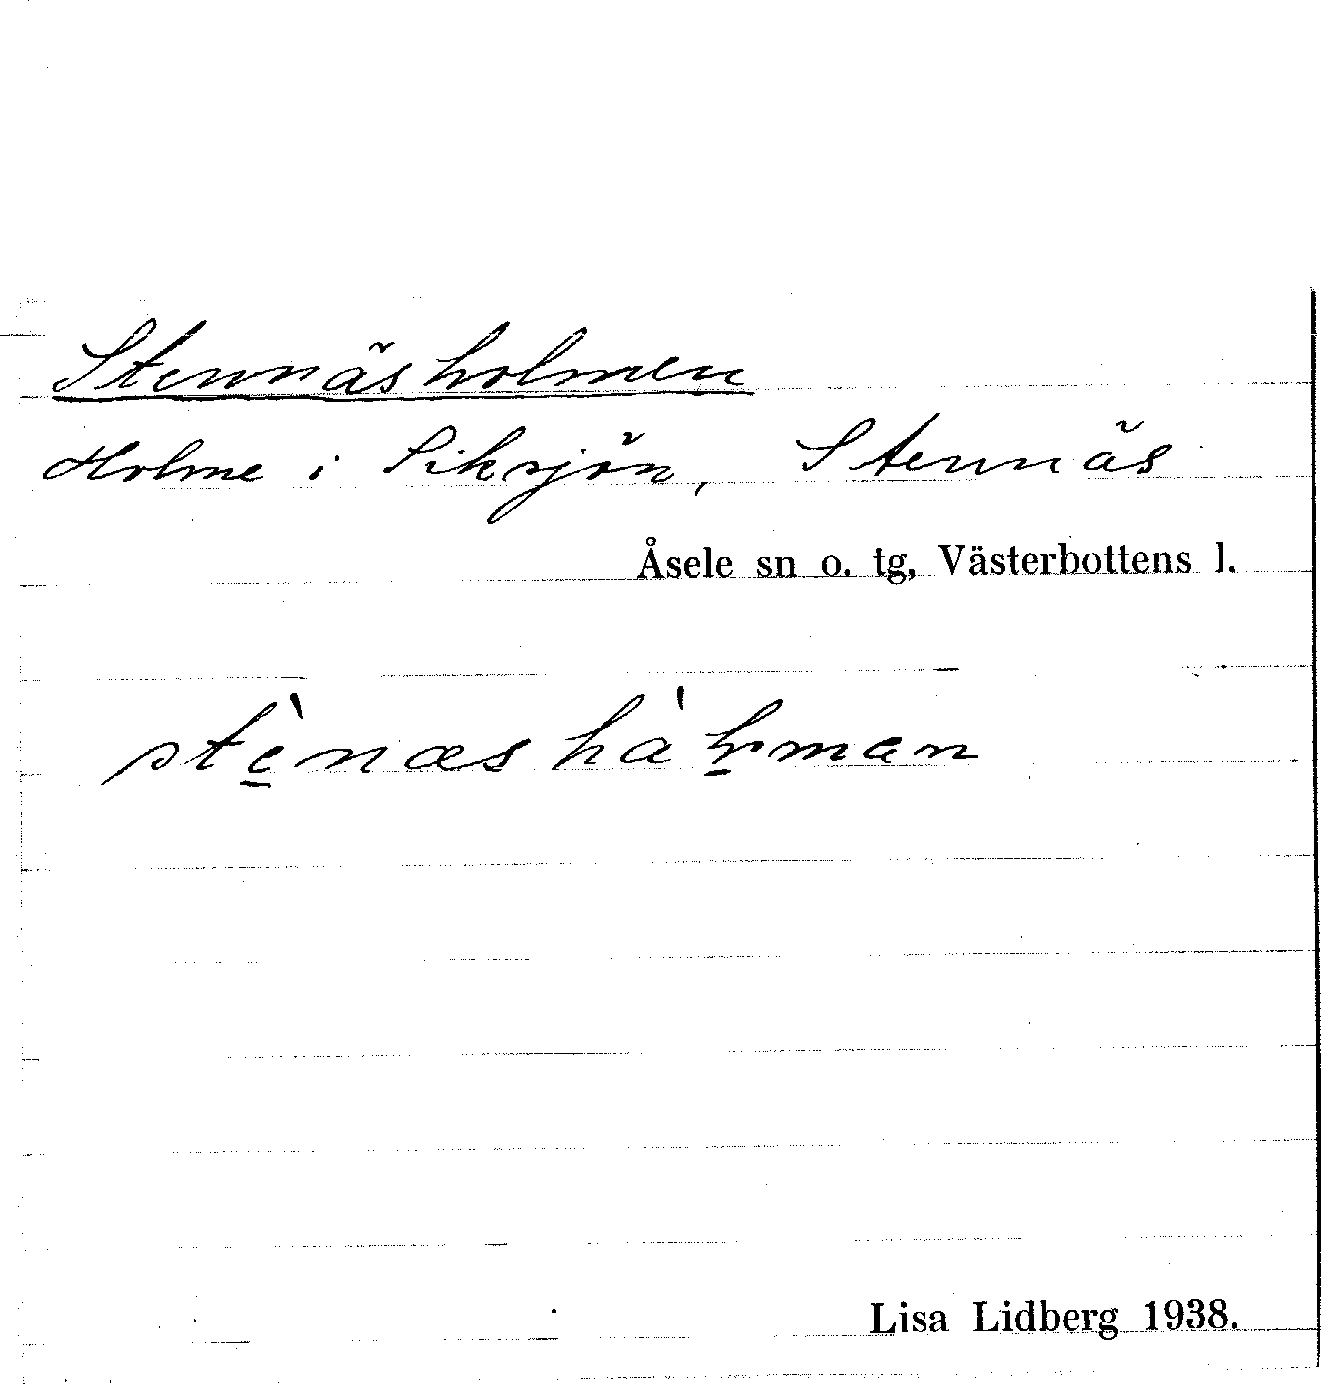 Stennäsholmen
Holme i Siksjön, Stennäs
Åsele sn o. tg, Västerbottens l.
Lisa Lidberg 1938.